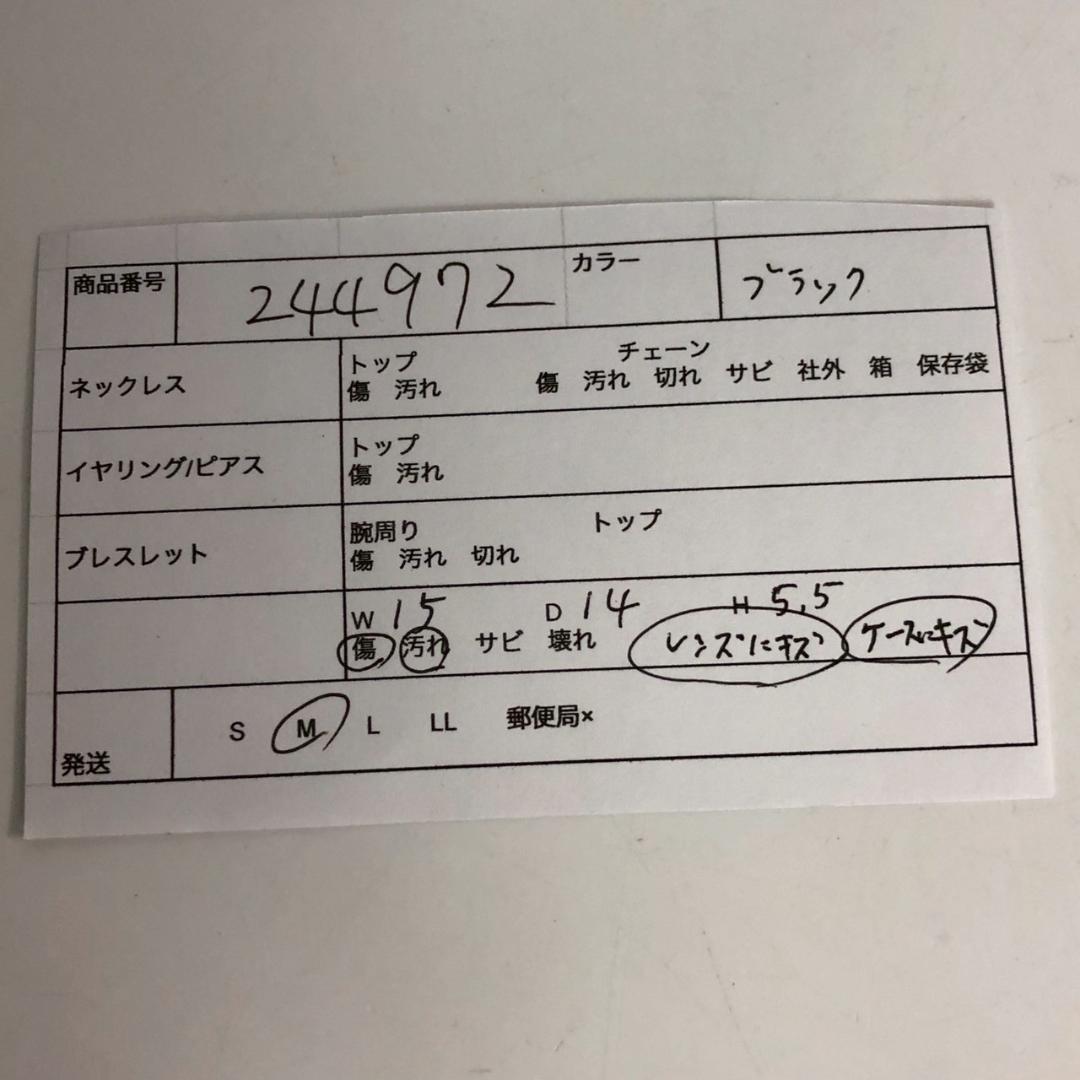 商品番号 244972 カラー ブラック
ネックレス トップ チェーン
傷 汚れ 傷 汚れ 切れ サビ 社外 箱 保存袋
イヤリング/ピアス トップ
傷 汚れ
ブレスレット 腕周り トップ
傷 汚れ 切れ
W 15 D 14 H 5.5
傷 汚れ サビ 壊れ レンズにキズ ケースにキズ
発送 S M L LL 郵便局×